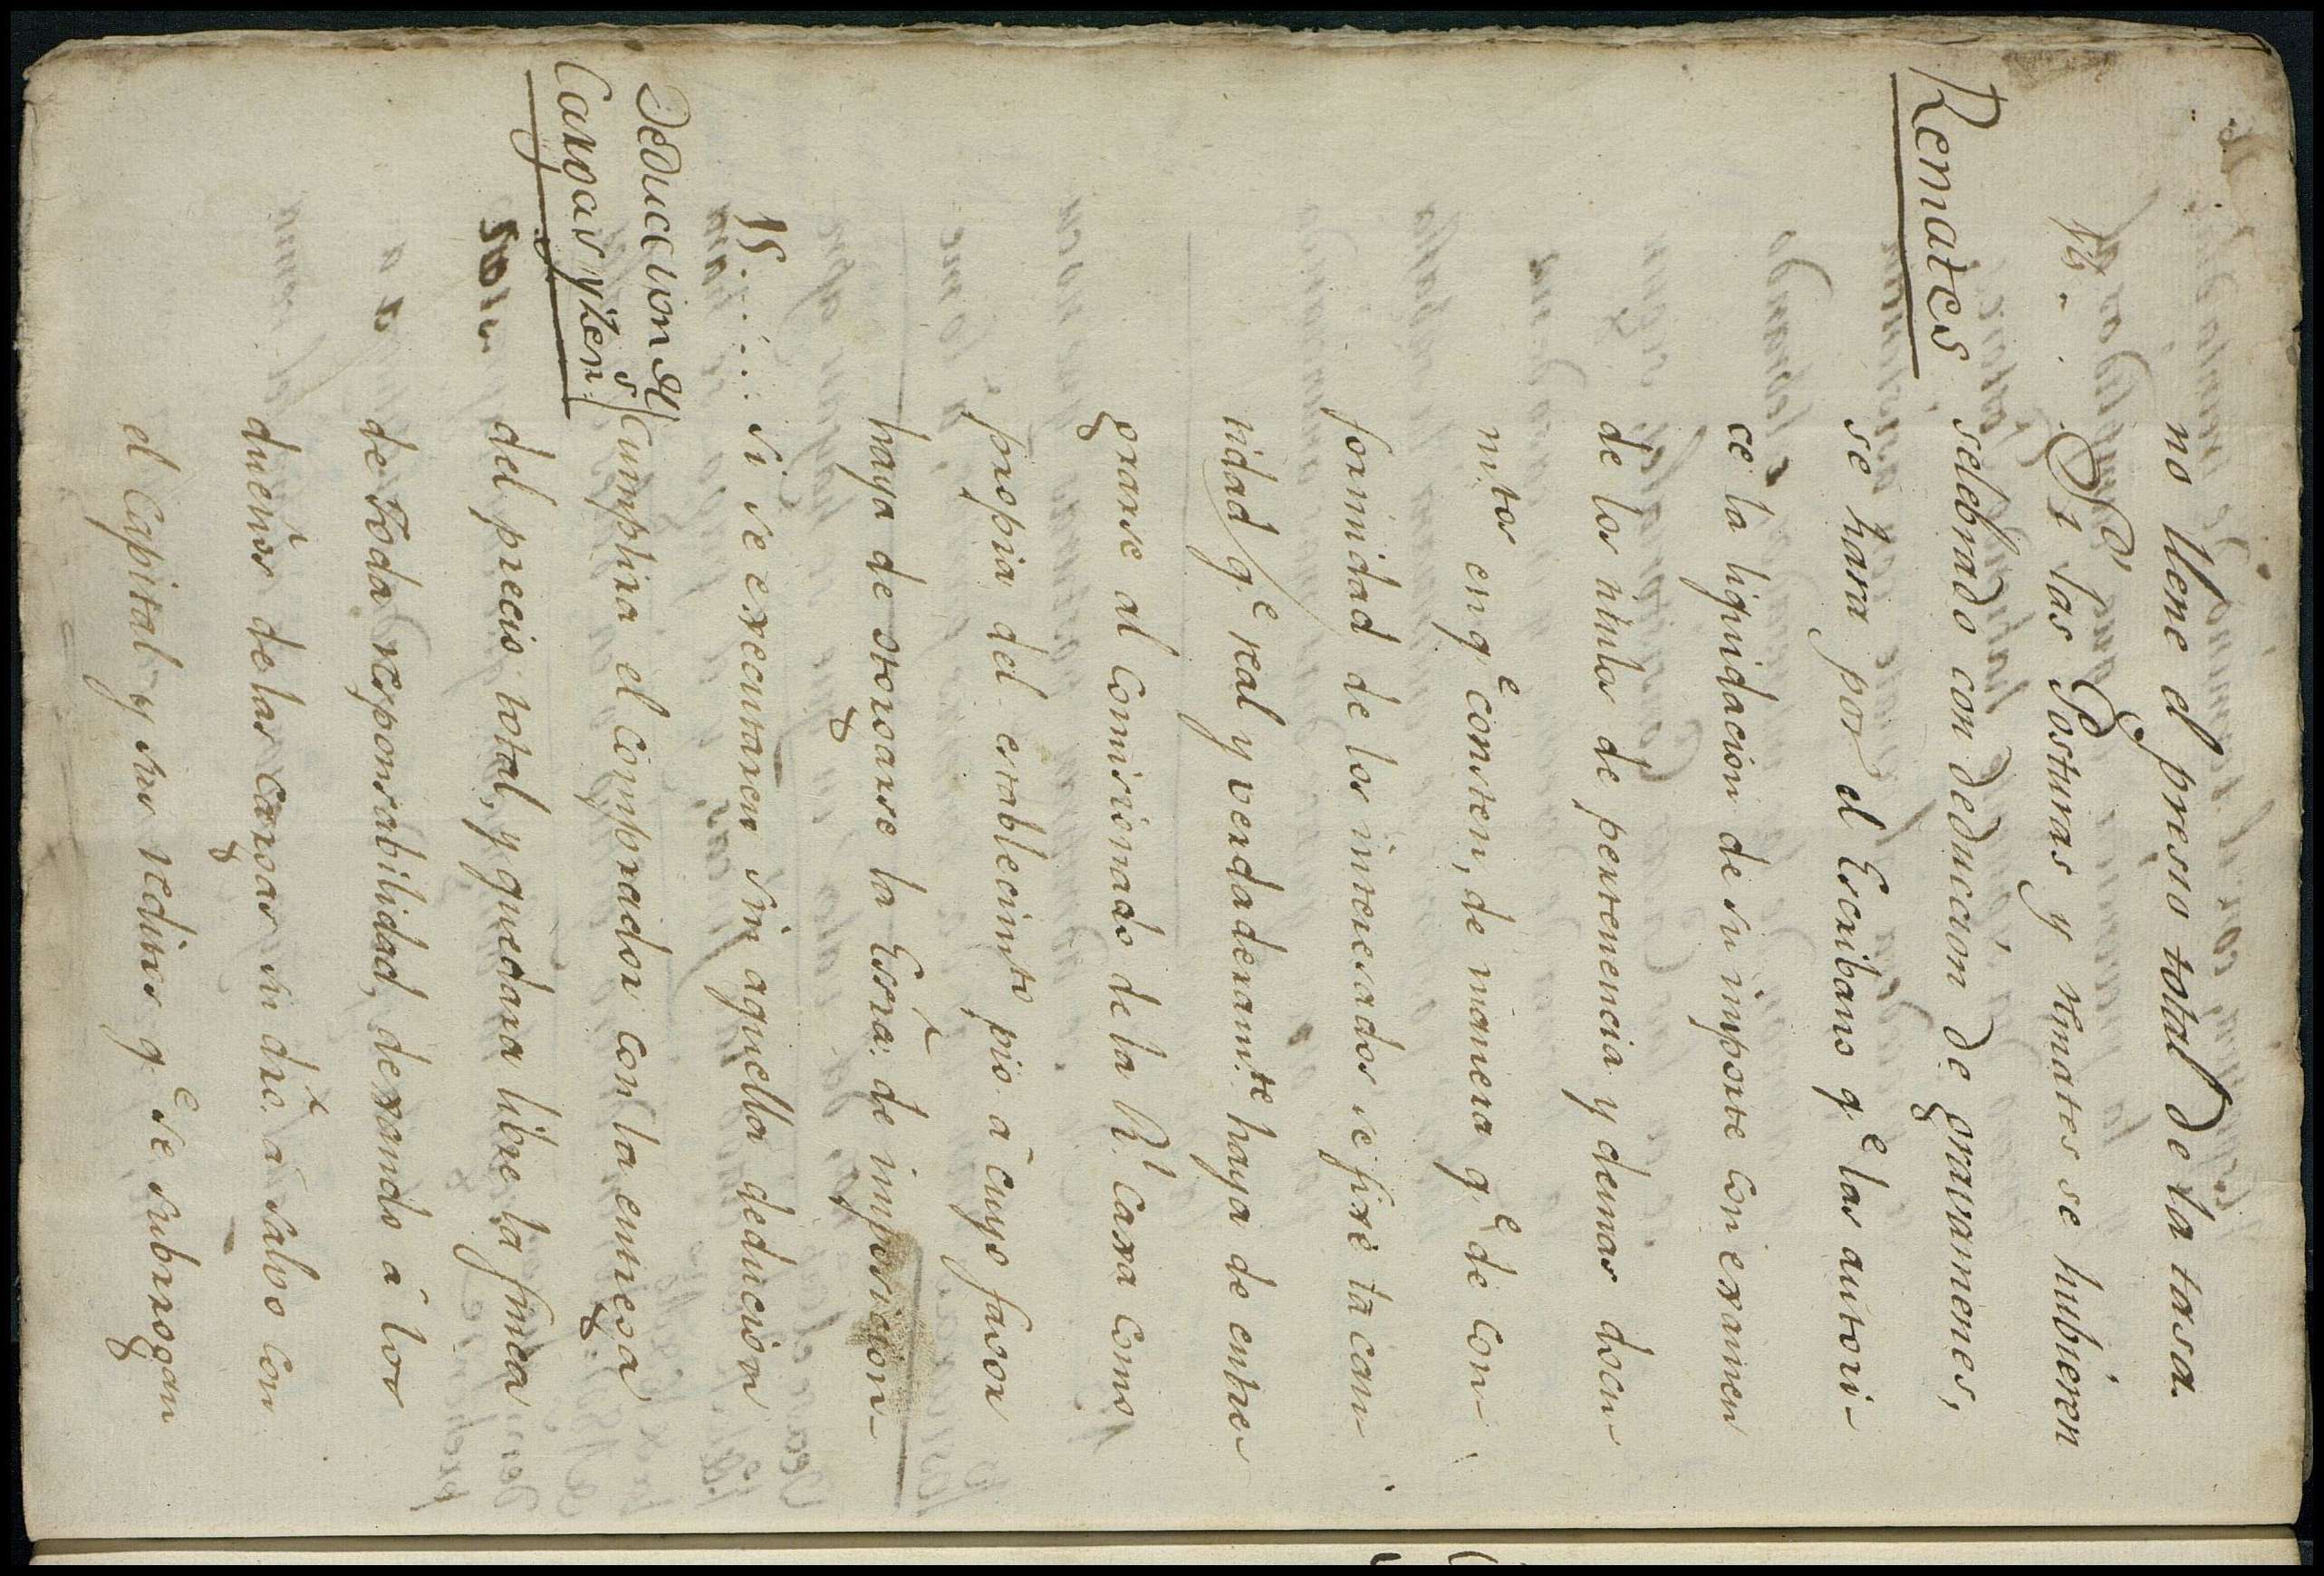 no llene el presio total de la tasa.
14. . . Si las Posturas y remates se hubieren
Remates
selebrado con deduccion de gravamenes,
se hara por el Escribano q.e las autori-
ce la liquidacion de su importe con examen
de los titulos de pertenencia y demas docu-
m.tos en q.e consten, de manera q.e de con-
formidad de los interesados se fixe la can-
tidad q.e real y verdaderam.te haya de entre-
garse al Comisionado de la R.l Caxa como
propia del establecim.to pio â cuyo favor
haya de otorgarse la Essrâ. de imposicion-
15. . . . . si se executaren sin aquella deducion
Deduccion de
Cargas y iten.s
cumplira el comprador con la entrega
del precio total, y quedara libre la finca
de toda responsabilidad, dexando â los
dueños de las cargas su dr̃o. â salvo con
el Capital y sus reditos q.e se subrrogan